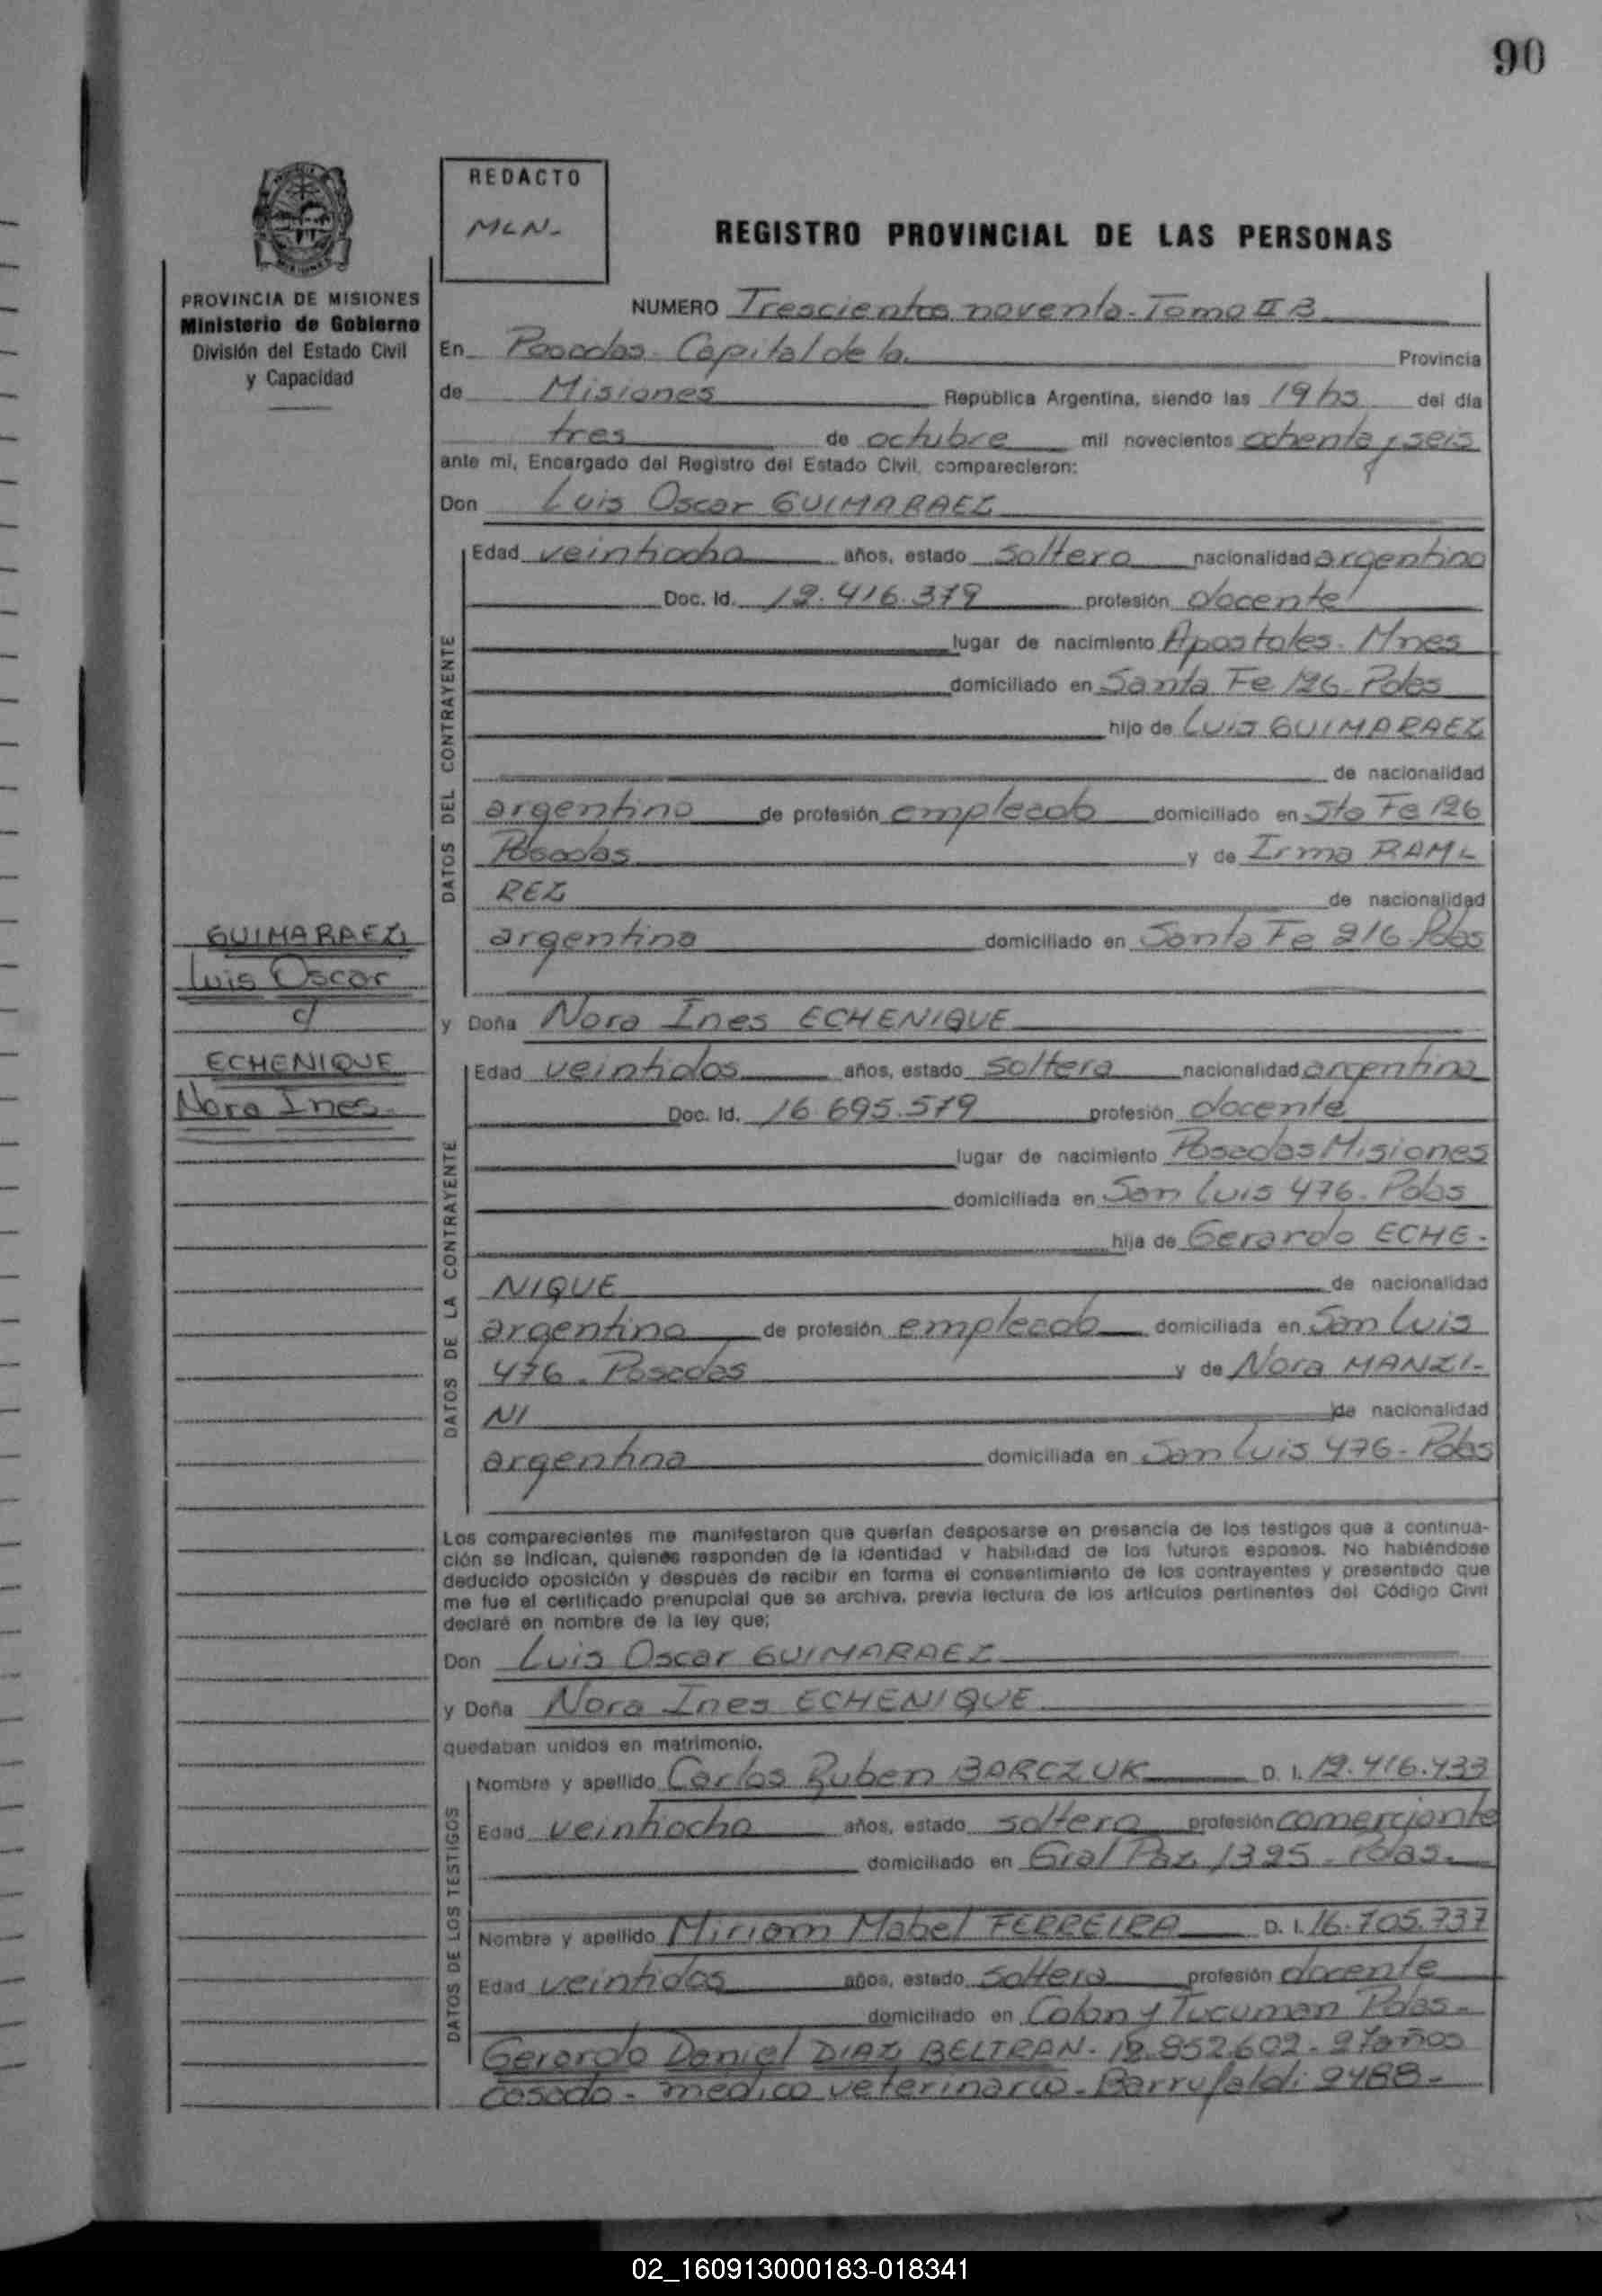 90
REDACTO
MLN-
REGISTRO PROVINCIAL DE LAS PERSONAS
PROVINCIA DE MISIONES
Ministerio de Gobierno
División del Estado Civil
y Capacidad
NUMERO Trescientos noventa - Tomo II B
En Posadas - Capital de la Provincia
de Misiones República Argentina, siendo las 19 hs del día
tres de octubre mil novecientos ochenta y seis
ante mi, Encargado del Registro del Estado Civil, comparecieron:
Don Luis Oscar GUIMARAEZ
DATOS DEL CONTRAYENTE
Edad veintiocho años, estado soltero nacionalidad argentino
Doc. Id. 12.416.379 profesión docente
lugar de nacimiento Apostoles. Mnes
domiciliado en Santa Fe 126 - Pdas
hijo de Luis GUIMARAEZ
de nacionalidad
argentino de profesión empleado domiciliado en Sta Fe 126
Posadas y de Irma RAMI-
REZ de nacionalidad
argentina domiciliado en Santa Fe 216 Pdas
GUIMARAEZ
Luis Oscar
c/
ECHENIQUE
Nora Ines-
y Doña Nora Ines ECHENIQUE
DATOS DE LA CONTRAYENTE
Edad veintidos años, estado soltera nacionalidad argentina
Doc. Id. 16.695.579 profesión docente
lugar de nacimiento Posadas Misiones
domiciliada en San Luis 476 - Pdas
hija de Gerardo ECHE-
NIQUE de nacionalidad
argentino de profesión empleado domiciliada en San Luis
476 - Posadas y de Nora MANZI-
NI de nacionalidad
argentina domiciliada en San Luis 476 - Pdas
Los comparecientes me manifestaron que querían desposarse en presencia de los testigos que a continua-
ción se indican, quienes responden de la identidad y habilidad de los futuros esposos. No habiéndose
deducido oposición y después de recibir en forma el consentimiento de los contrayentes y presentado que
me fue el certificado prenupcial que se archiva, previa lectura de los artículos pertinentes del Código Civil
declaré en nombre de la ley que;
Don Luis Oscar GUIMARAEZ
y Doña Nora Ines ECHENIQUE
quedaban unidos en matrimonio.
DATOS DE LOS TESTIGOS
Nombre y apellido Carlos Ruben BARCZUK D. I. 12.416.433
Edad veintiocho años, estado soltero profesión comerciante
domiciliado en Gral Paz 1395 - Pdas.
Nombre y apellido Miriam Mabel FERREIRA D. I. 16.705.737
Edad veintidos años, estado soltera profesión docente
domiciliado en Colon y Tucuman Pdas -
Gerardo Daniel DIAZ BELTRAN - 12.852.602 - 27 años
casado - medico veterinario - Barrufaldi 2488 -
02_160913000183-018341